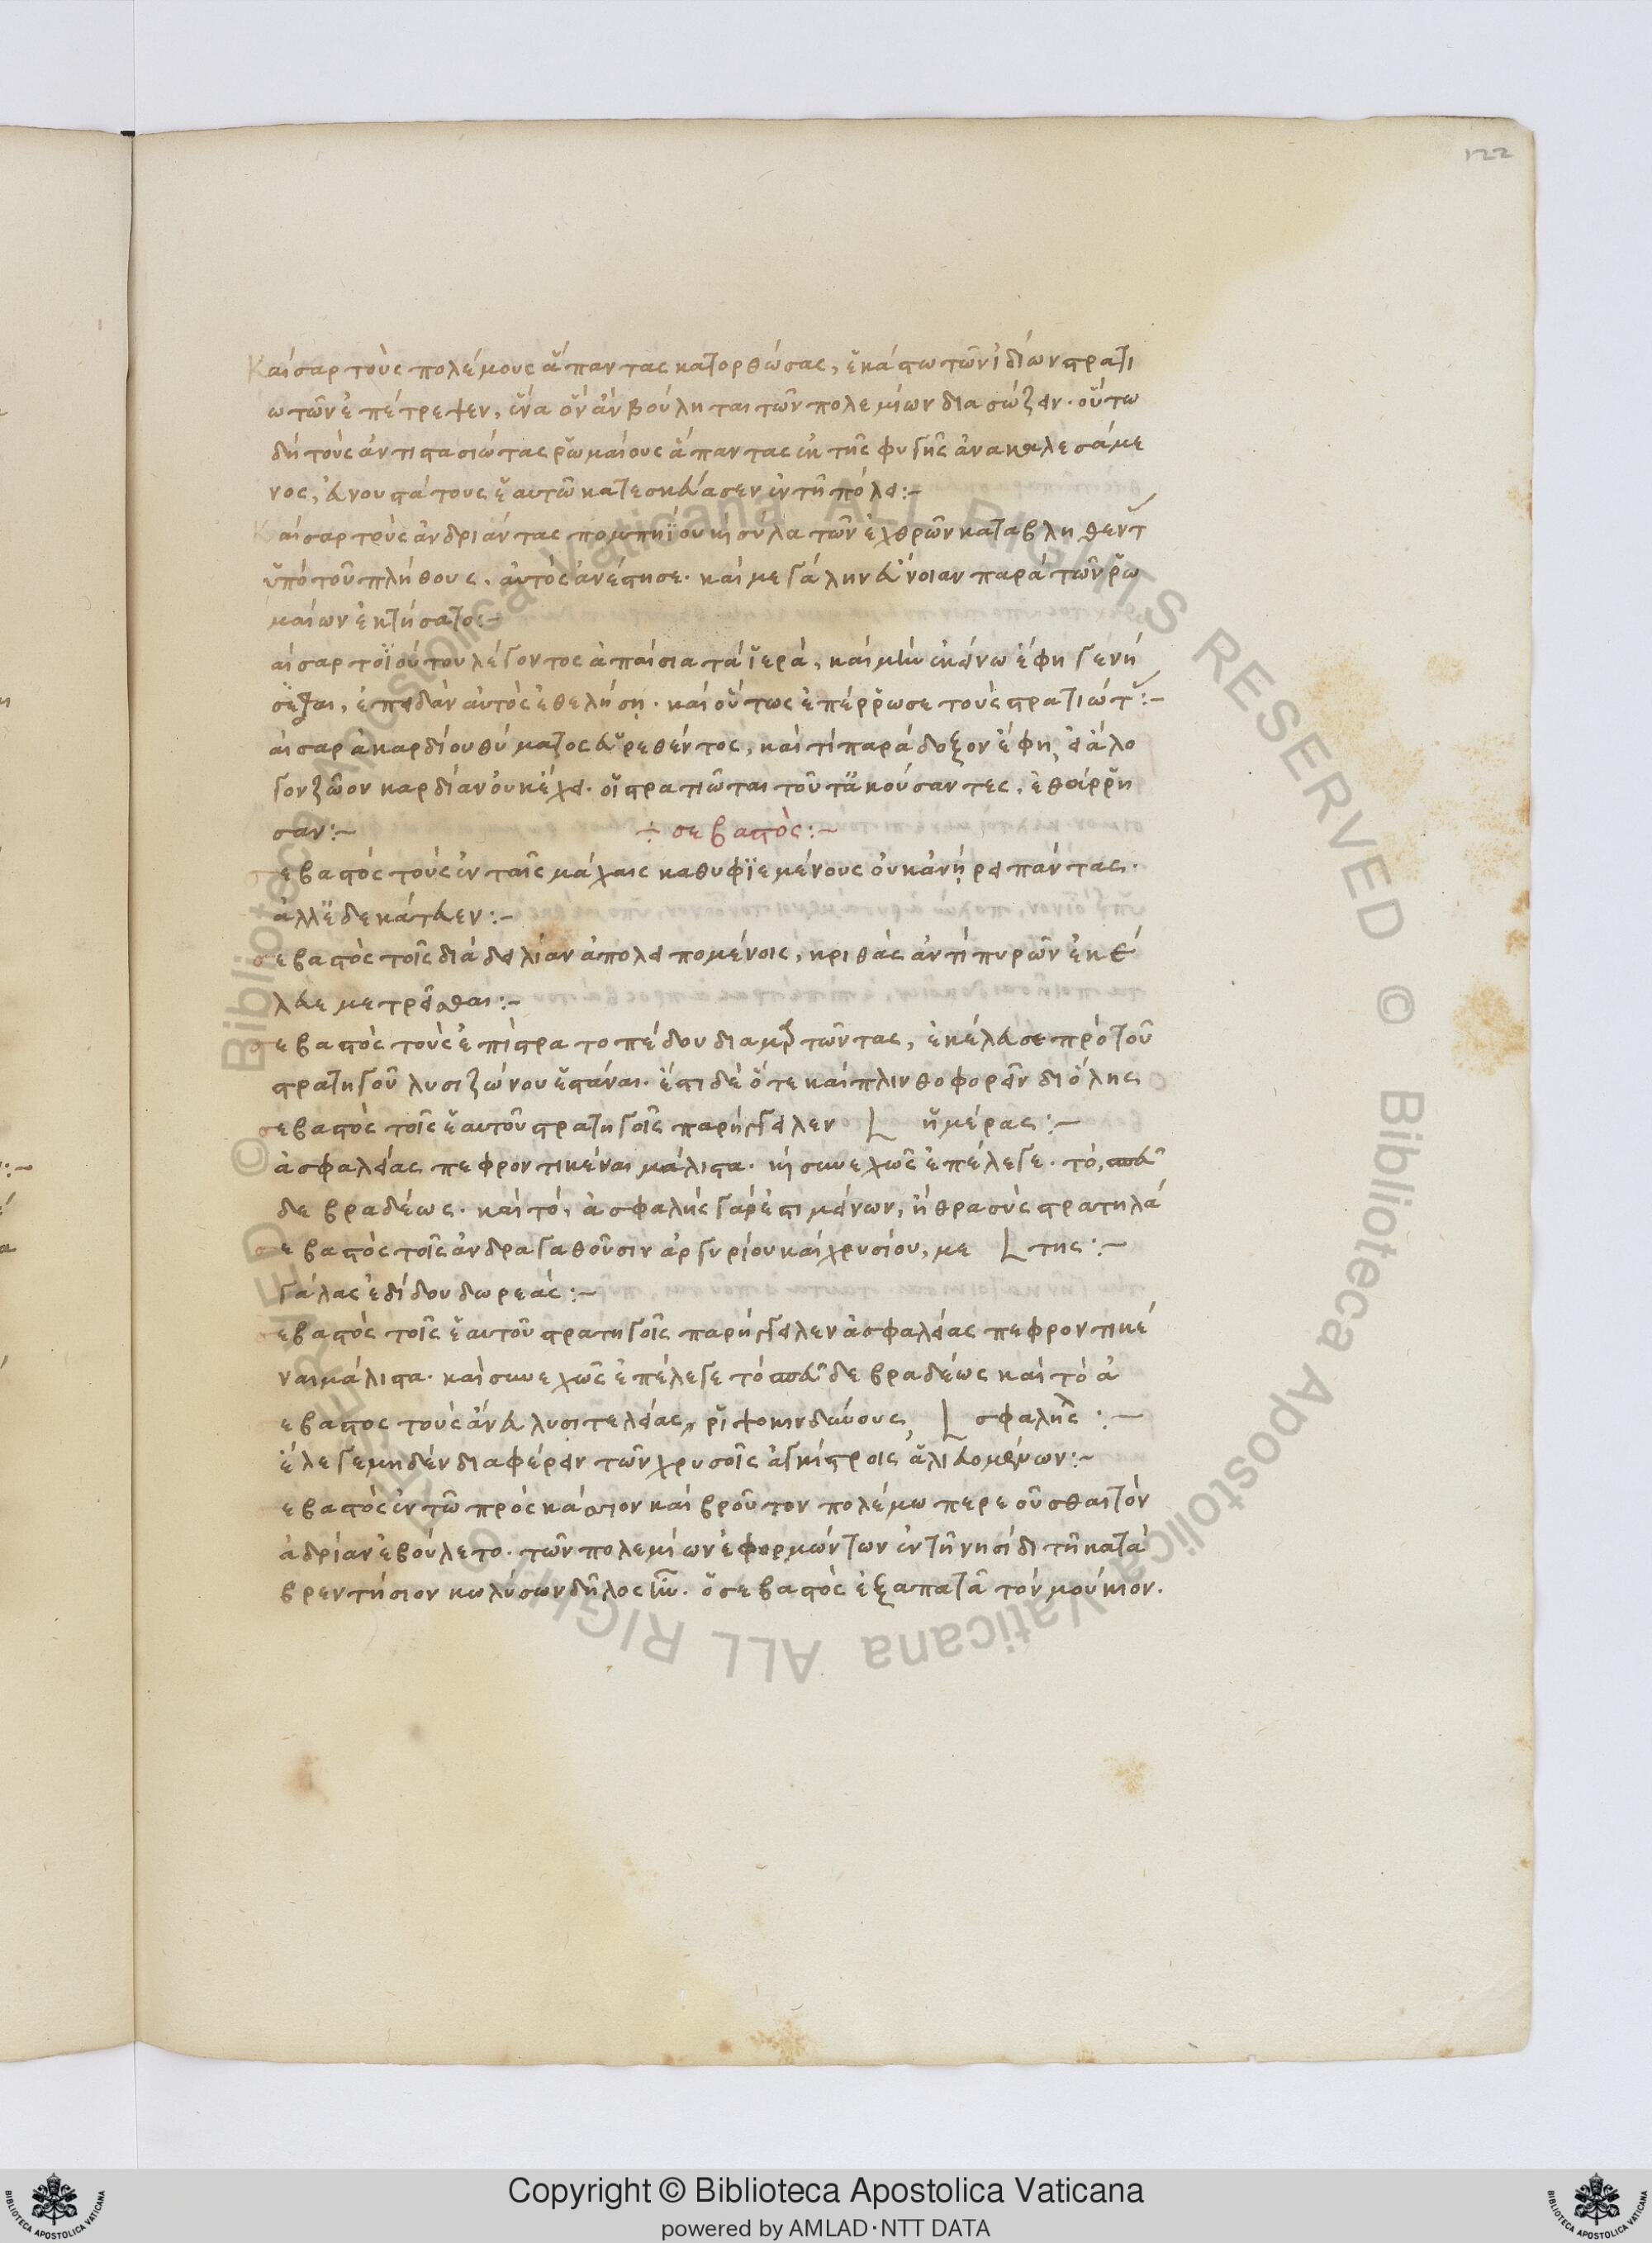 122
Καίσαρ τοὺς πολέμους ἅπαντας κατορθώσας, ἑκάστω τῶν ἰδίων στρατι
ωτῶν ἐπέτρεψεν, ἕνα ὃν ἂν βούληται τῶν πολεμίων διασώζειν· οὕτω
δὴ τοὺς ἀντιστασιώτας ῥωμαίους ἅπαντας ἐκ τῆς φυγῆς ἀνακαλεσάμε
νος, εὐνουστάτους ἑαυτῶ κατεσκεύασεν ἐν τῆ πόλει:-
Καίσαρ τοὺς ἀνδριάντας πομπηΐου καὶ σύλα τῶν ἐχθρῶν καταβληθέντ
ὑπὸ τοῦ πλήθους, αὐτὸς ἀνέστησε· καὶ μεγάλην εὔνοιαν παρὰ τῶν ῥω
μαίων ἐκτήσατο:-
αίσαρ τοϊούτου λέγοντος ἀπαίσια τὰ ἱερὰ, καὶ μὴν ἐκείνω ἔφη γενή
σεται, ἐπειδὰν αὐτὸς ἐθελήση· καὶ οὕτως ἐπέρρωσε τοὺς στρατιώτ:-
αισαρ ἀκαρδίου θύματος εὑρεθέντος, καὶ τί παράδοξον ἔφη, εἰ ἄλο
γον ζῶον καρδίαν οὐκ ἔχει· οἱ στρατιῶται τοῦτ' ἀκούσαντες, ἐθάρρη
σαν:- ÷ σεβαστὸς:-
σεβαστὸς τοὺς ἐν ταῖς μάχαις καθυφϊεμένους οὐκ ἀνήρει πάντας·
ἀλλ' ἐδεκάτευεν:-
σεβαστὸς τοῖς διὰ δειλίαν ἀπολειπομένοις, κριθὰς ἀντὶ πυρῶν ἐκέ
λευε μετρεῖσθαι:-
σεβαστὸς τοὺς ἐπὶ στρατοπέδου διαμαρτῶντας, ἐκέλευσε πρὸ τοῦ
στρατηγοῦ λυσιζώνου ἑστάναι· ἔστι δὲ ὅτε καὶ πλινθοφορεῖν δι ὅλης
σεβαστὸς τοῖς ἑαυτοῦ στρατηγοῖς παρήγγειλεν L ἡμέρας:-
ἀσφαλείας πεφροντικέναι μάλιστα· καὶ συνεχῶς ἐπέλεγε· τό, σπεῦ
δε βραδέως· καὶ τό, ἀσφαλὴς γάρ ἐστι μείνων, ἢ θρασὺς στρατηλά
σεβαστὸς τοῖς ἀνδραγαθοῦσιν ἀργυρίου καὶ χρυσίου, με L της:-
γάλας ἐδίδου δωρεάς:-
εβαστὸς τοῖς ἑαυτοῦ στρατηγοῖς παρήγγειλεν ἀσφαλείας πεφροντικέ
ναι μάλιστα· καὶ συνεχῶς ἐπέλεγε τὸ σπεῦδε βραδέως καὶ τὸ ἀ
εβαστος τοὺς ἄνευ λυσιτελείας, ῥιψοκινδύνους, L σφαλὴς:-
ἔλεγε μηδὲν διαφέρειν τῶν χρυσοῖς ἀγκίστροις ἁλιευομένων:-
εβαστὸς ἐν τῶ πρὸς κάσσιον καὶ βροῦτον πολέμω περεοῦσθαι τὸν
ἀδρίαν ἐβούλετο· τῶν πολεμίων ἐφορμώντων ἐν τῆ νησίδι τῆ κατὰ
βρεντήσιον κωλύσων δῆλος ἦν· ὁ σεβαστὸς ἐξαπατᾶ τὸν μούκιον.
Copyright © Biblioteca Apostolica Vaticana
powered by AMLAD·NTT DATA